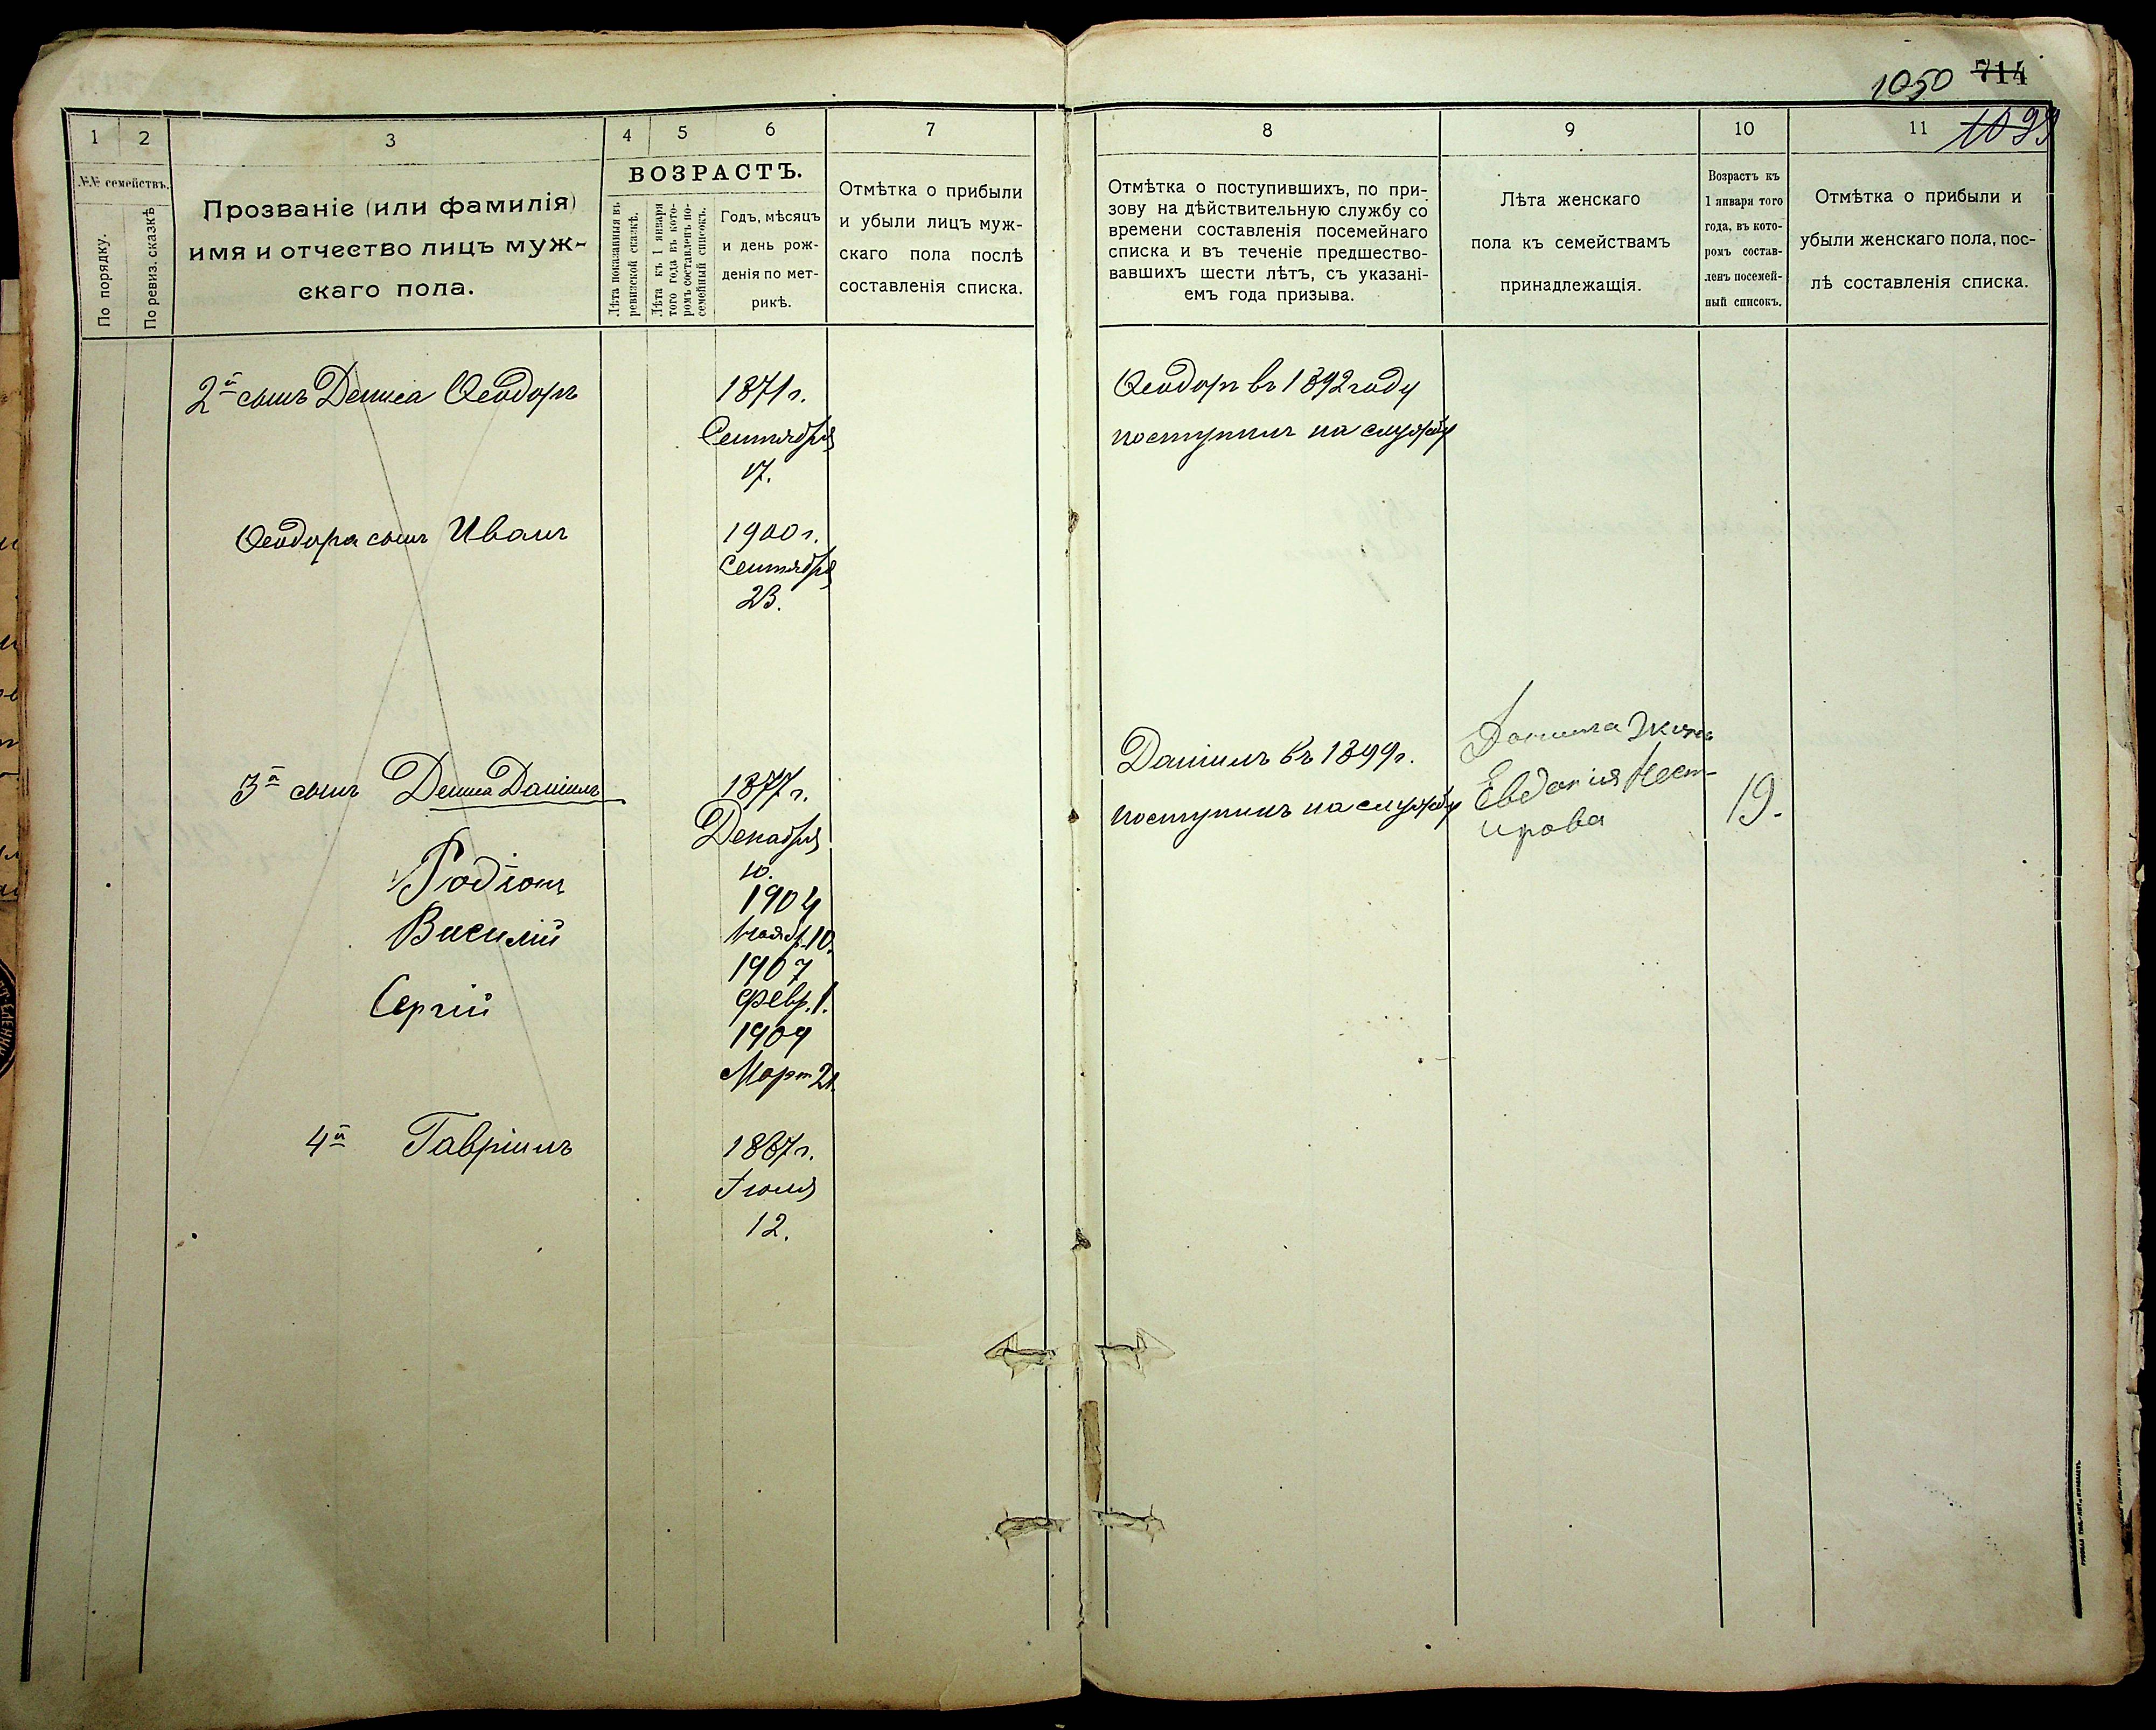 1050 714
1099
1 2 3 4 5 6 7
№№ семействъ.
По порядку.
По ревиз. сказкѣ
Прозваніе (или фамилія)
имя и отчество лицъ муж-
скаго пола.
ВОЗРАСТЪ.
Лѣта показанныя въ
ревизской сказкѣ.
Лѣта къ 1 января
того года въ кото-
ромъ составленъ по-
семейный списокъ.
Годъ, мѣсяцъ
и день рож-
денія по мет-
рикѣ.
Отмѣтка о прибыли
и убыли лицъ муж-
скаго пола послѣ
составленія списка.
2й сынъ Дениса Ѳеодоръ
1871 г.
Сентября
17.
Ѳеодора сынъ Иванъ
1900 г.
Сентября
23.
3й сынъ Дениса Даніилъ
1877 г.
Декабря
10.
Родіонъ
1904
Ноябр. 10.
Василій
1907
Февр. 1.
Сергій
1909
Март 21.
4й Гавріилъ
1887 г.
Іюля
12.
8 9 10 11
Отмѣтка о поступившихъ, по при-
зову на дѣйствительную службу со
времени составленія посемейнаго
списка и въ теченіе предшество-
вавшихъ шести лѣтъ, съ указані-
емъ года призыва.
Лѣта женскаго
пола къ семействамъ
принадлежащія.
Возрастъ къ
1 января того
года, въ кото-
ромъ состав-
ленъ посемей-
ный списокъ.
Отмѣтка о прибыли и
убыли женскаго пола, пос-
лѣ составленія списка.
Ѳеодоръ въ 1892 году
поступилъ на службу
Даніилъ въ 1899 г.
поступилъ на службу
Данила жена
Евдокія Нест-
ирова
19.